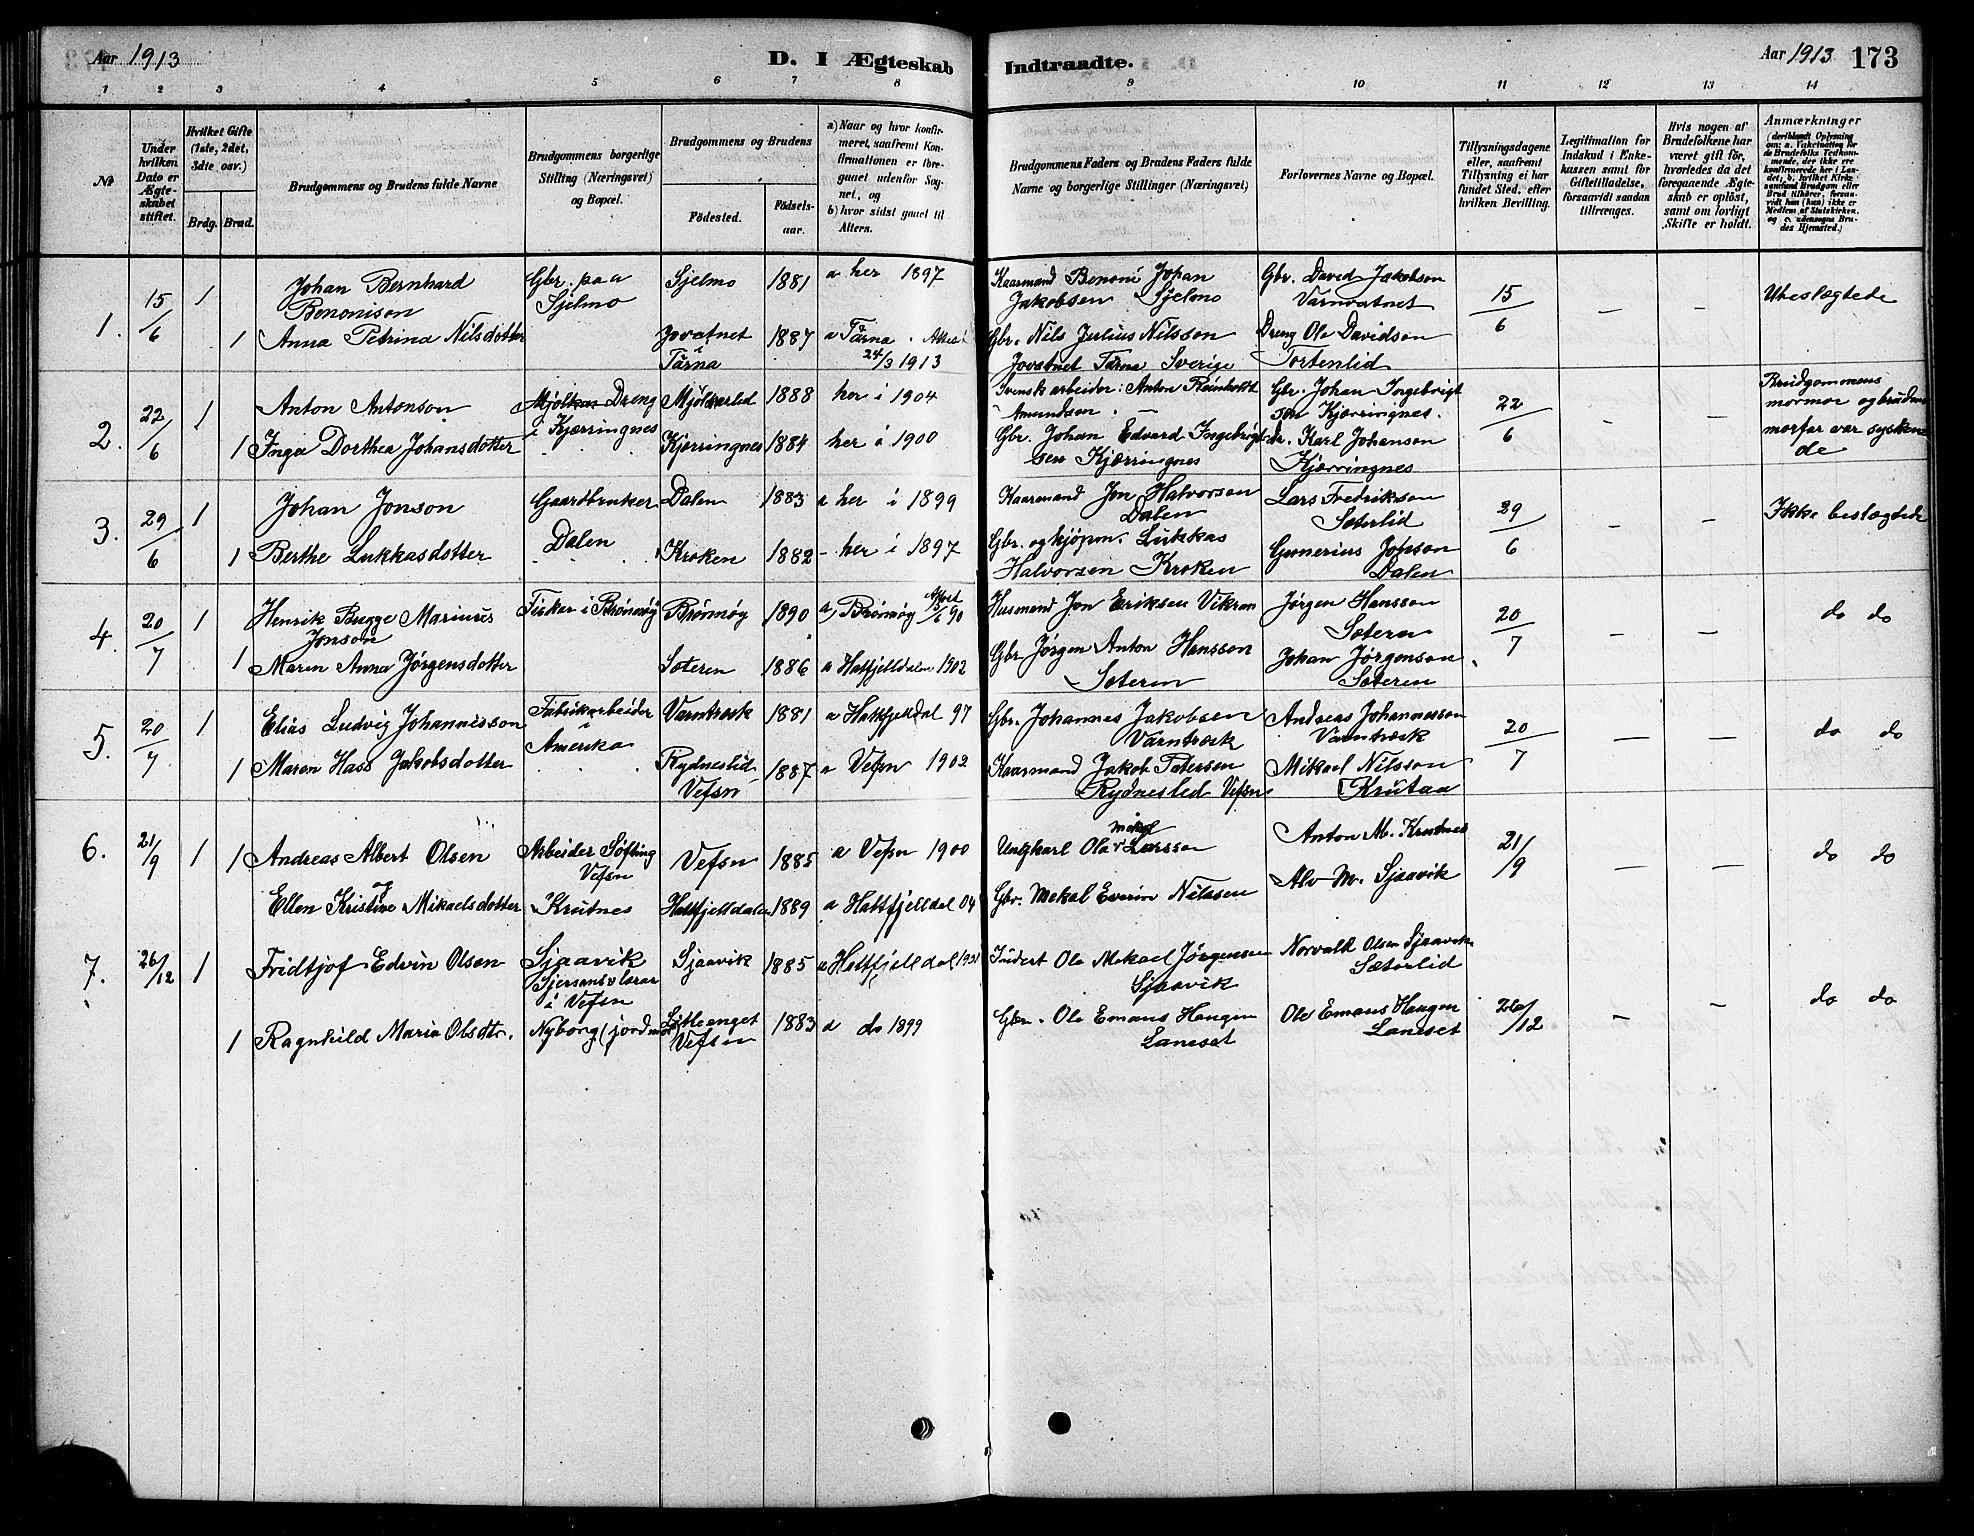 Aar 1913
D. I Ægteskab
Indtraadte.
Aar 1913
173
1 2 3 4 5 6 7 8 9 10 11 12 13 14
№
Under hvilken Dato er Ægteskabet stiftet.
Hvilket Gifte (1ste, 2det, 3die osv.)
Brdg. Brud.
Brudgommens og Brudens fulde Navne
Brudgommens borgerlige Stilling (Næringsvei) og Bopæl.
Brudgommens og Brudens
Fødested.
Fødselsaar.
a) Naar og hvor konfirmeret, saafremt Konfirmationen er foregaaet udenfor Sognet, og
b) hvor sidst gaaet til Alters.
Brudgommens Faders og Brudens Faders fulde Navne og borgerlige Stillinger (Næringsvei)
Forlovernes Navne og Bopæl.
Tillysningsdagene eller, saafremt Tillysning ei har fundet Sted, efter hvilken Bevilling.
Legitimation for Indskud i Enkekassen samt for Giftetilladelse, forsaavidt saadan tiltrænges.
Hvis nogen af Brudefolkene har været gift før, hvorledes da det foregaaende Ægteskab er opløst, samt om lovligt Skifte er holdt.
Anmærkninger
(deriblandt Oplysning om: a. Vaccination for de Brudefolks Vedkommende, der ikke ere konfirmerede her i Landet; b. hvilket Kirkesamfund Brudgom eller Brud tilhører, forsaavidt han (hun) ikke er Medlem af Statskirken, og c. udensogns Brudes Hjemsted.)
1. 15/6 1
Johan Bernhard
Benonison
Gbr. paa
Sjelmo
Sjelmo 1881 a her 1897
Kaarmand Benoni Johan
Jakobsen Sjelmo
Gbr. David Jakobson
Varnvatnet
15/6 — —
Ubeslægtede
1 Anna Petrina Nilsdotter
Jovatnet
i
Tärna
1887 a Tärna. Attest
24/3 1913
Gbr. Nils Julius Nilsson
Jovatnet Tärna Sverige
Dreng Ole Davidson
Tortenlid
2. 22/6 1
Anton Antonson
Dreng
i Kjærringnes
Mjölkarlid 1888 her i 1904
Svensk arbeider: Anton Reinholdt
Amundson. —
Gbr. Johan Ingebrigt
son Kjærringnes.
22/6 - —
Brudgommens
mormor og brudens
morfar var sysken
de
1 Inga Dorthea Johansdotter
Kjærringnes 1884 her i 1900
Gbr. Johan Edvard Ingebrigt
sen Kjærringnes
Dr. Karl Johanson
Kjærringnes
3. 29/6 1
Johan Jonson
Gaardbruker
Dalen
Dalen 1883 a her i 1899
Kaarmand Jon Halvorsen
Dalen
Lars Fredrikson
Sæterlid
29/6 — —
Ikke beslægtede
1 Berthe Lukkasdotter
Kroken 1882 - her i 1897
Gbr. og kjøpm. Lukkas
Halvorsen Kroken
Gunerius Jonson
Dalen
4. 20/7 1
Henrik Brygge Marius
Jonson
Fisker i Brønnøy
Brønnøy 1890 a Brønnøy Attest
/6 90
Husmand Jon Eriksen Vikran
Jørgen Hansson
Sæteren
20/7 — —
do do
1 Maren Anna Jørgensdotter
Sæteren 1886 a Hatfjelldalen 1902
Gbr Jørgen Anton Hansson
Sæteren
Johan Jørgenson
Sæteren
5. 20/7 1
Elias Ludvig Johannesson
Fabrikarbeider
i
Amerika
Varntræsk 1881 a Hattfjelldal 97
Gbr. Johannes Jakobsen
Varntræsk
Andreas Johannesson
Varntræsk
20/7 — —
do do
1 Maren Hass Jakobsdotter
Rydneslid
Vefsn
1887 a Vefsn 1902
Kaarmand Jakob Petersen
Rydneslid Vefsn
Mikael Nilsson
Krutaa
6. 21/9 1 1
Andreas Albert Olsen
Arbeider Søfting
Vefsn
Vefsn 1885 a Vefsn 1900
Mikal
Ungkarl Ola Larsson
Anton M. Krutnes
21/9 — —
do do
og
Ellen Kristine Mikaelsdotter
Krutnes Hattfjelldalen 1889 a Hattfjelldal 04
Gbr. Mekal Everin Nilssen
Alv M. Sjaavik
7. 26/12 1
Fridtjof Edvin Olsen
Sjaavik
i Vefsn
Sjaavik 1885 a Hattfjelldal 1901
Inderst Ole Mekael Jørgensen
Sjaavik
Norvald Olsen Sjaavik
Sæterlid
26/12 — —
do do
1 Ragnhild Maria Olsdtr.
Nyborg (jordmor)
Littleenget
Vefsn
1883 a do 1899
Gbr. Ole Emans Haugen
Laneset
Ole Emans Haugen
Laneset